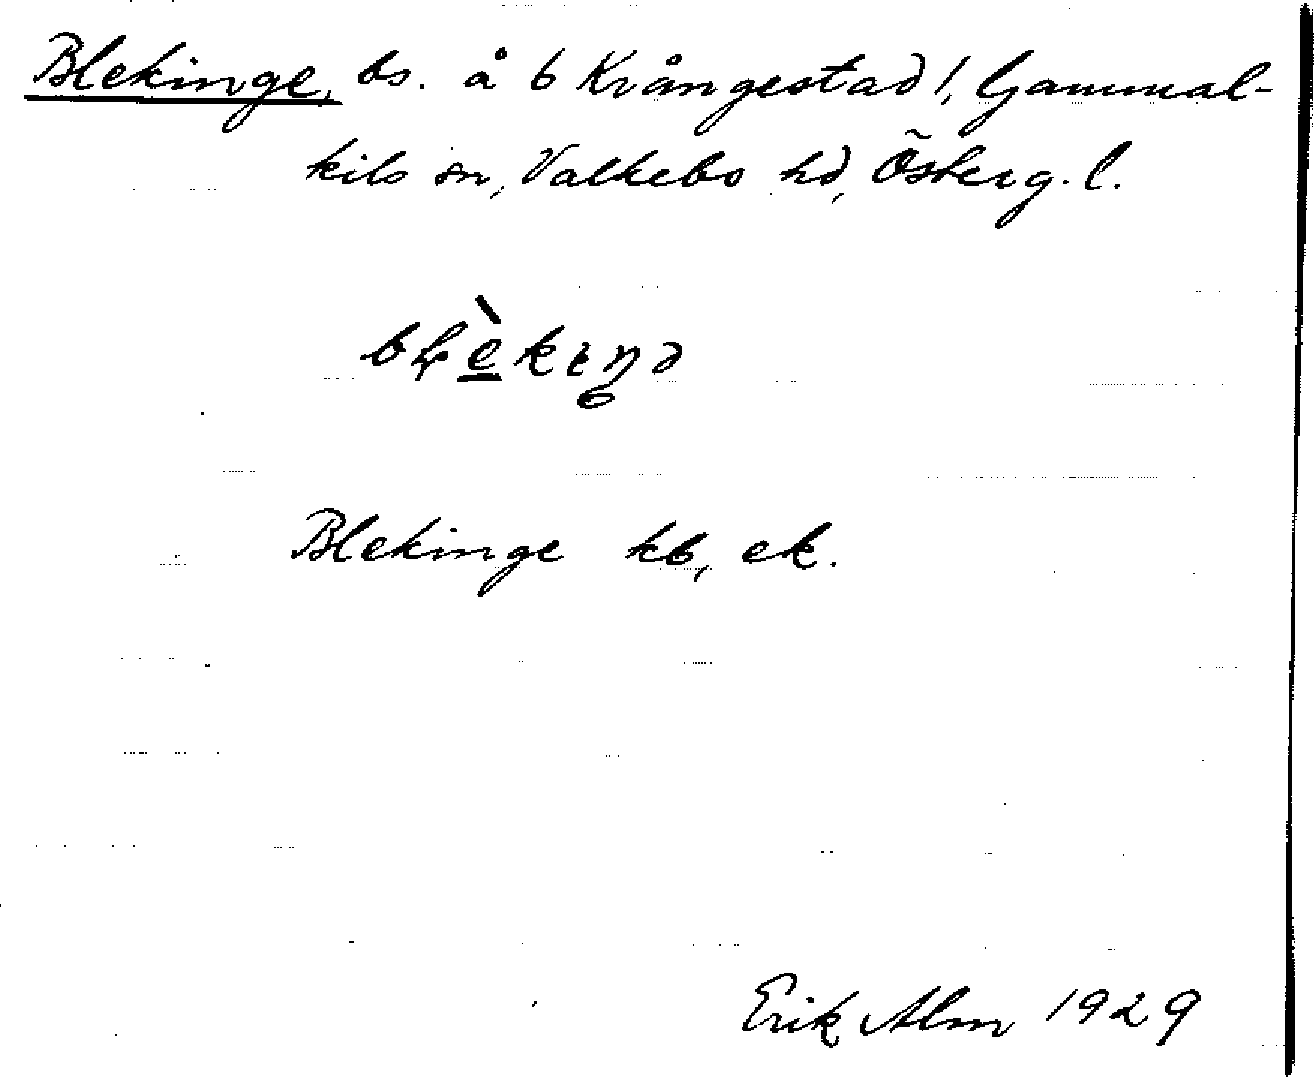 Blekinge, bs. å 6 Krångestad !, Gammal-
kils sn, Valkebo hd, Österg. l.
Blekinge kb, ek.
Erik Alm 1929